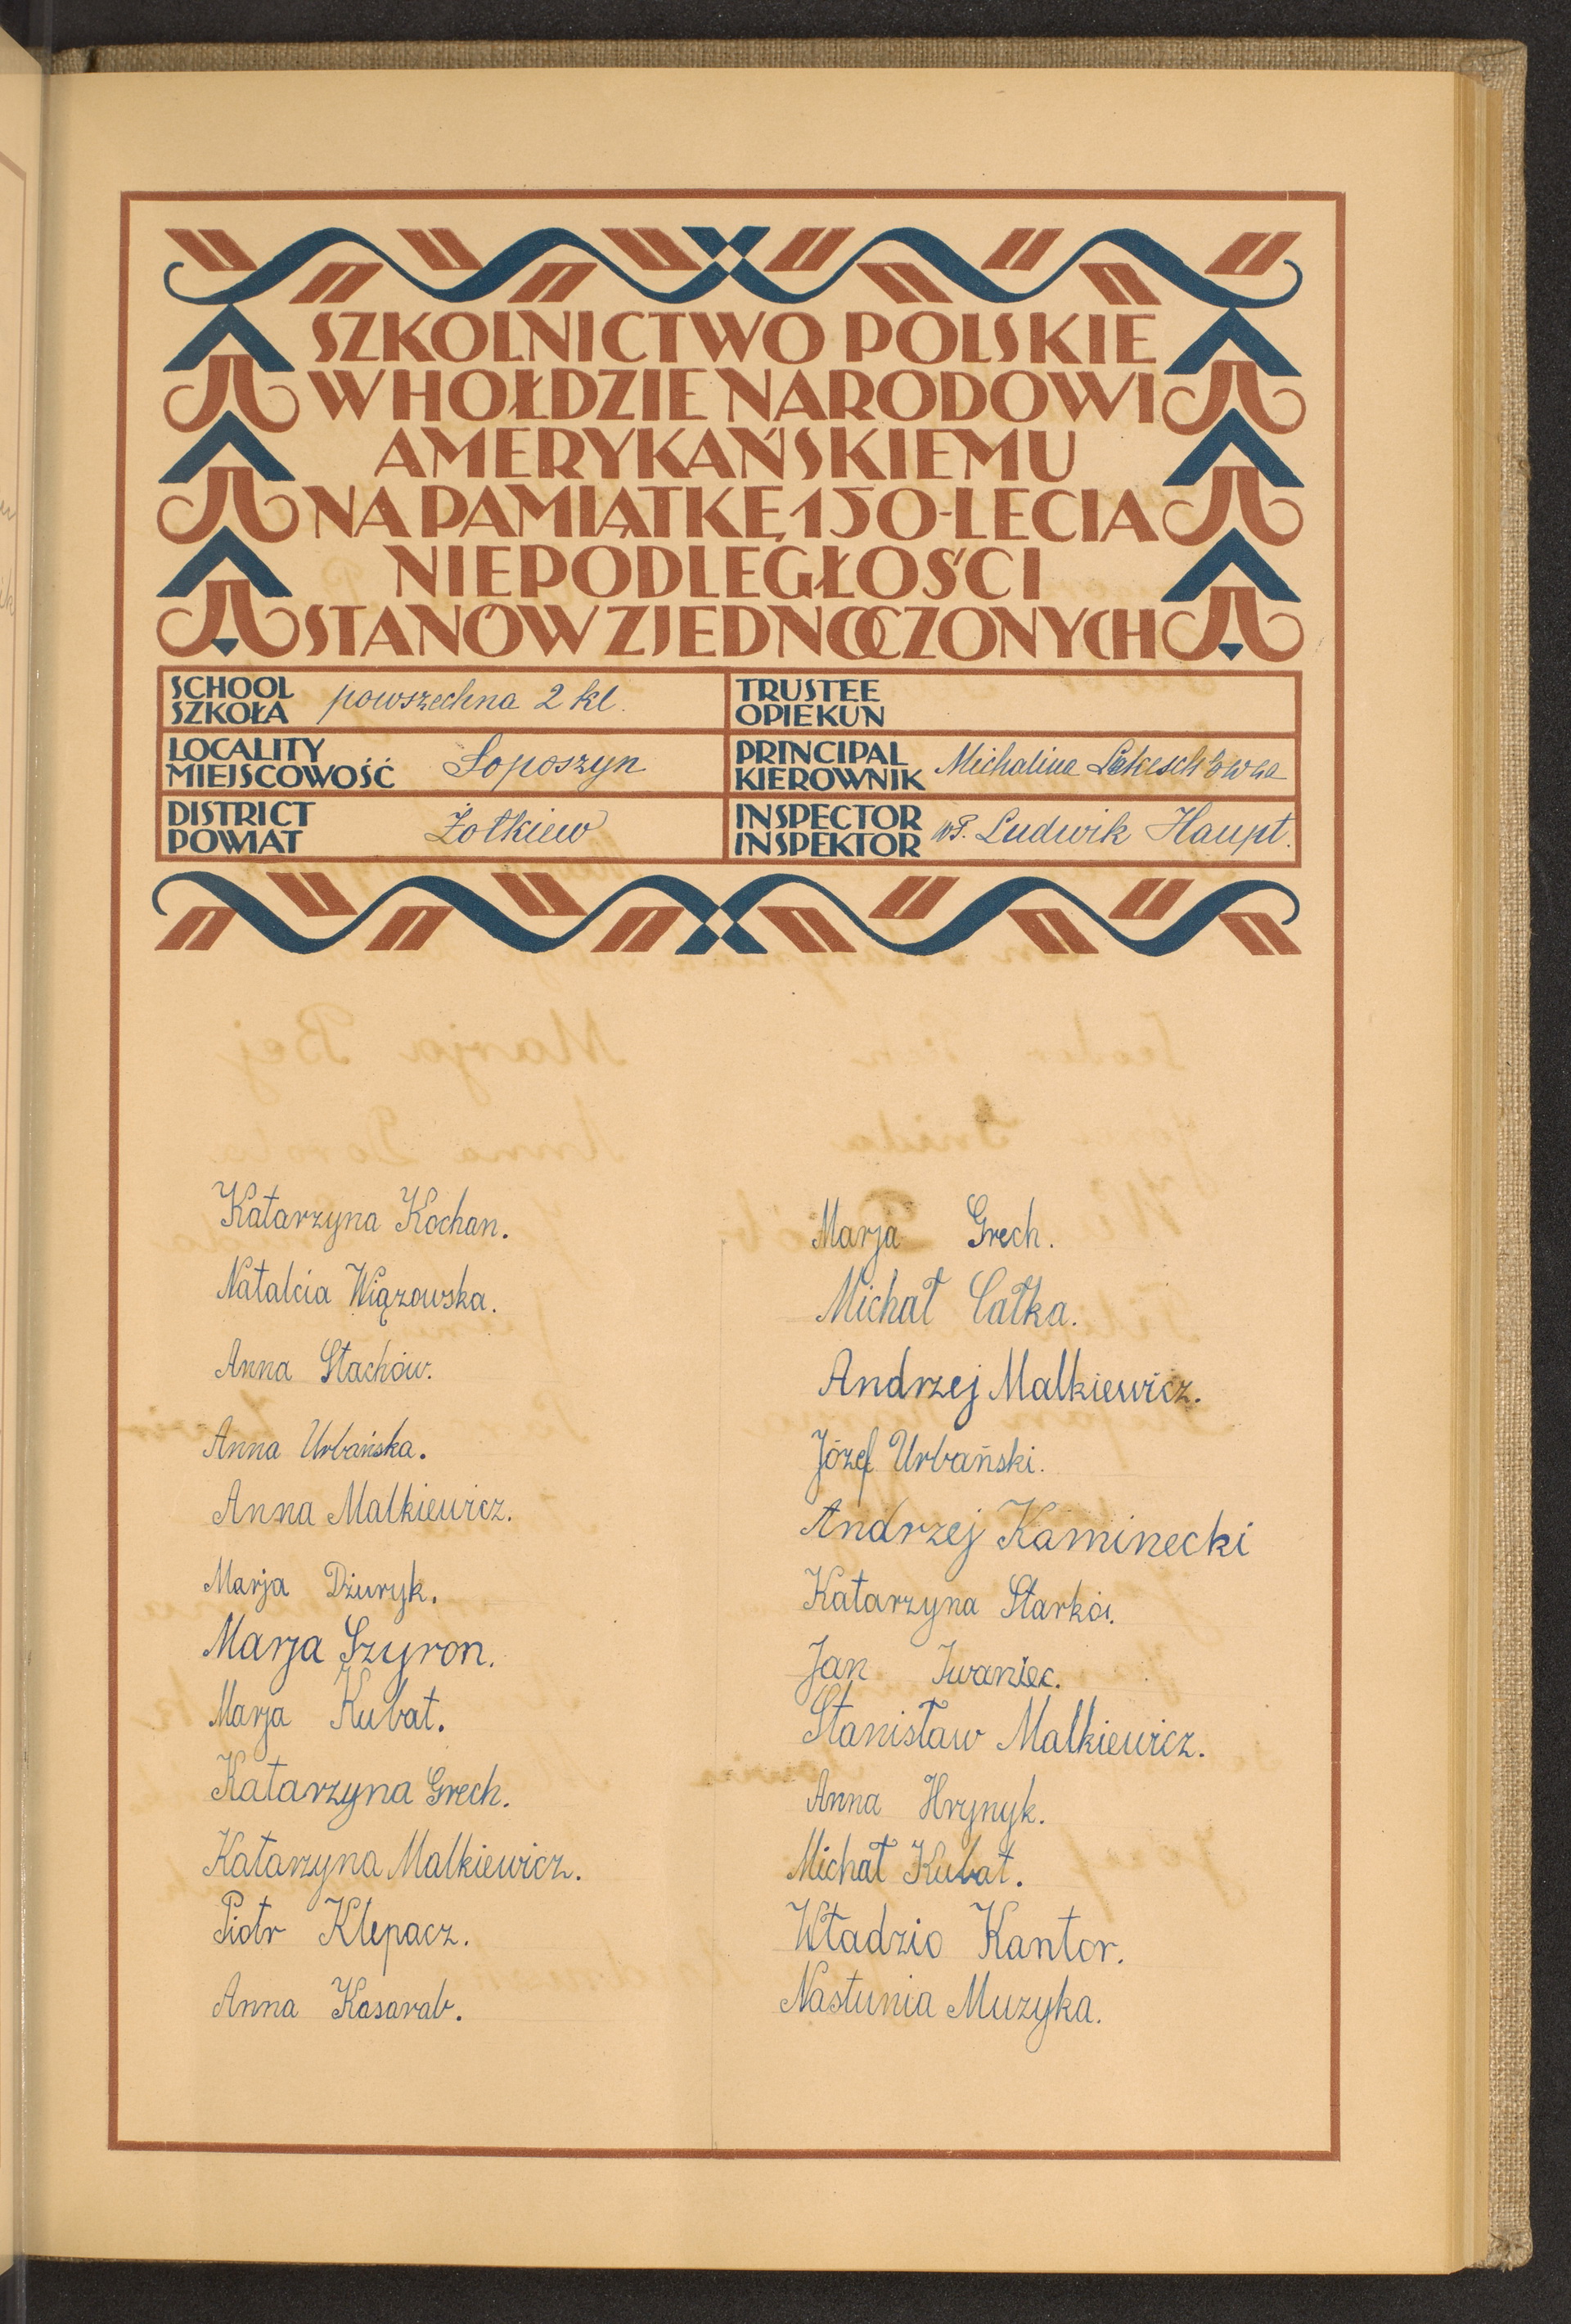 SZKOLNICTWO POLSKIE
W HOŁDZIE NARODOWI
AMERYKAŃSKIEMU
NA PAMIĄTKĘ 150-LECIA
NIEPODLEGŁOŚCI
STANÓW ZJEDNOCZONYCH
SCHOOL
SZKOŁA powszechna 2 kl.
TRUSTEE
OPIEKUN
LOCALITY
MIEJSCOWOŚĆ Soposzyn
PRINCIPAL
KIEROWNIK Michalina
DISTRICT
POWIAT Żołkiew
INSPECTOR
INSPEKTOR Ludwik Haupt.
Katarzyna Kochan.
Natalcia Wiązowska.
Anna Stachów.
Anna Urbańska.
Anna Malkiewicz.
Marja Dżuryk.
Marja Szyron.
Marja Kubat.
Katarzyna Grech.
Katarzyna Malkiewicz.
Piotr Klepacz.
Anna Kasarab.
Marja Grech.
Michał Całka.
Andrzej Malkiewicz.
Józef Urbański.
Andrzej Kaminecki
Katarzyna
Jan Iwaniec.
Stanisław Malkiewicz.
Anna Hrynyk.
Michał Kubat.
Władzio Kantor.
Nastunia Muzyka.